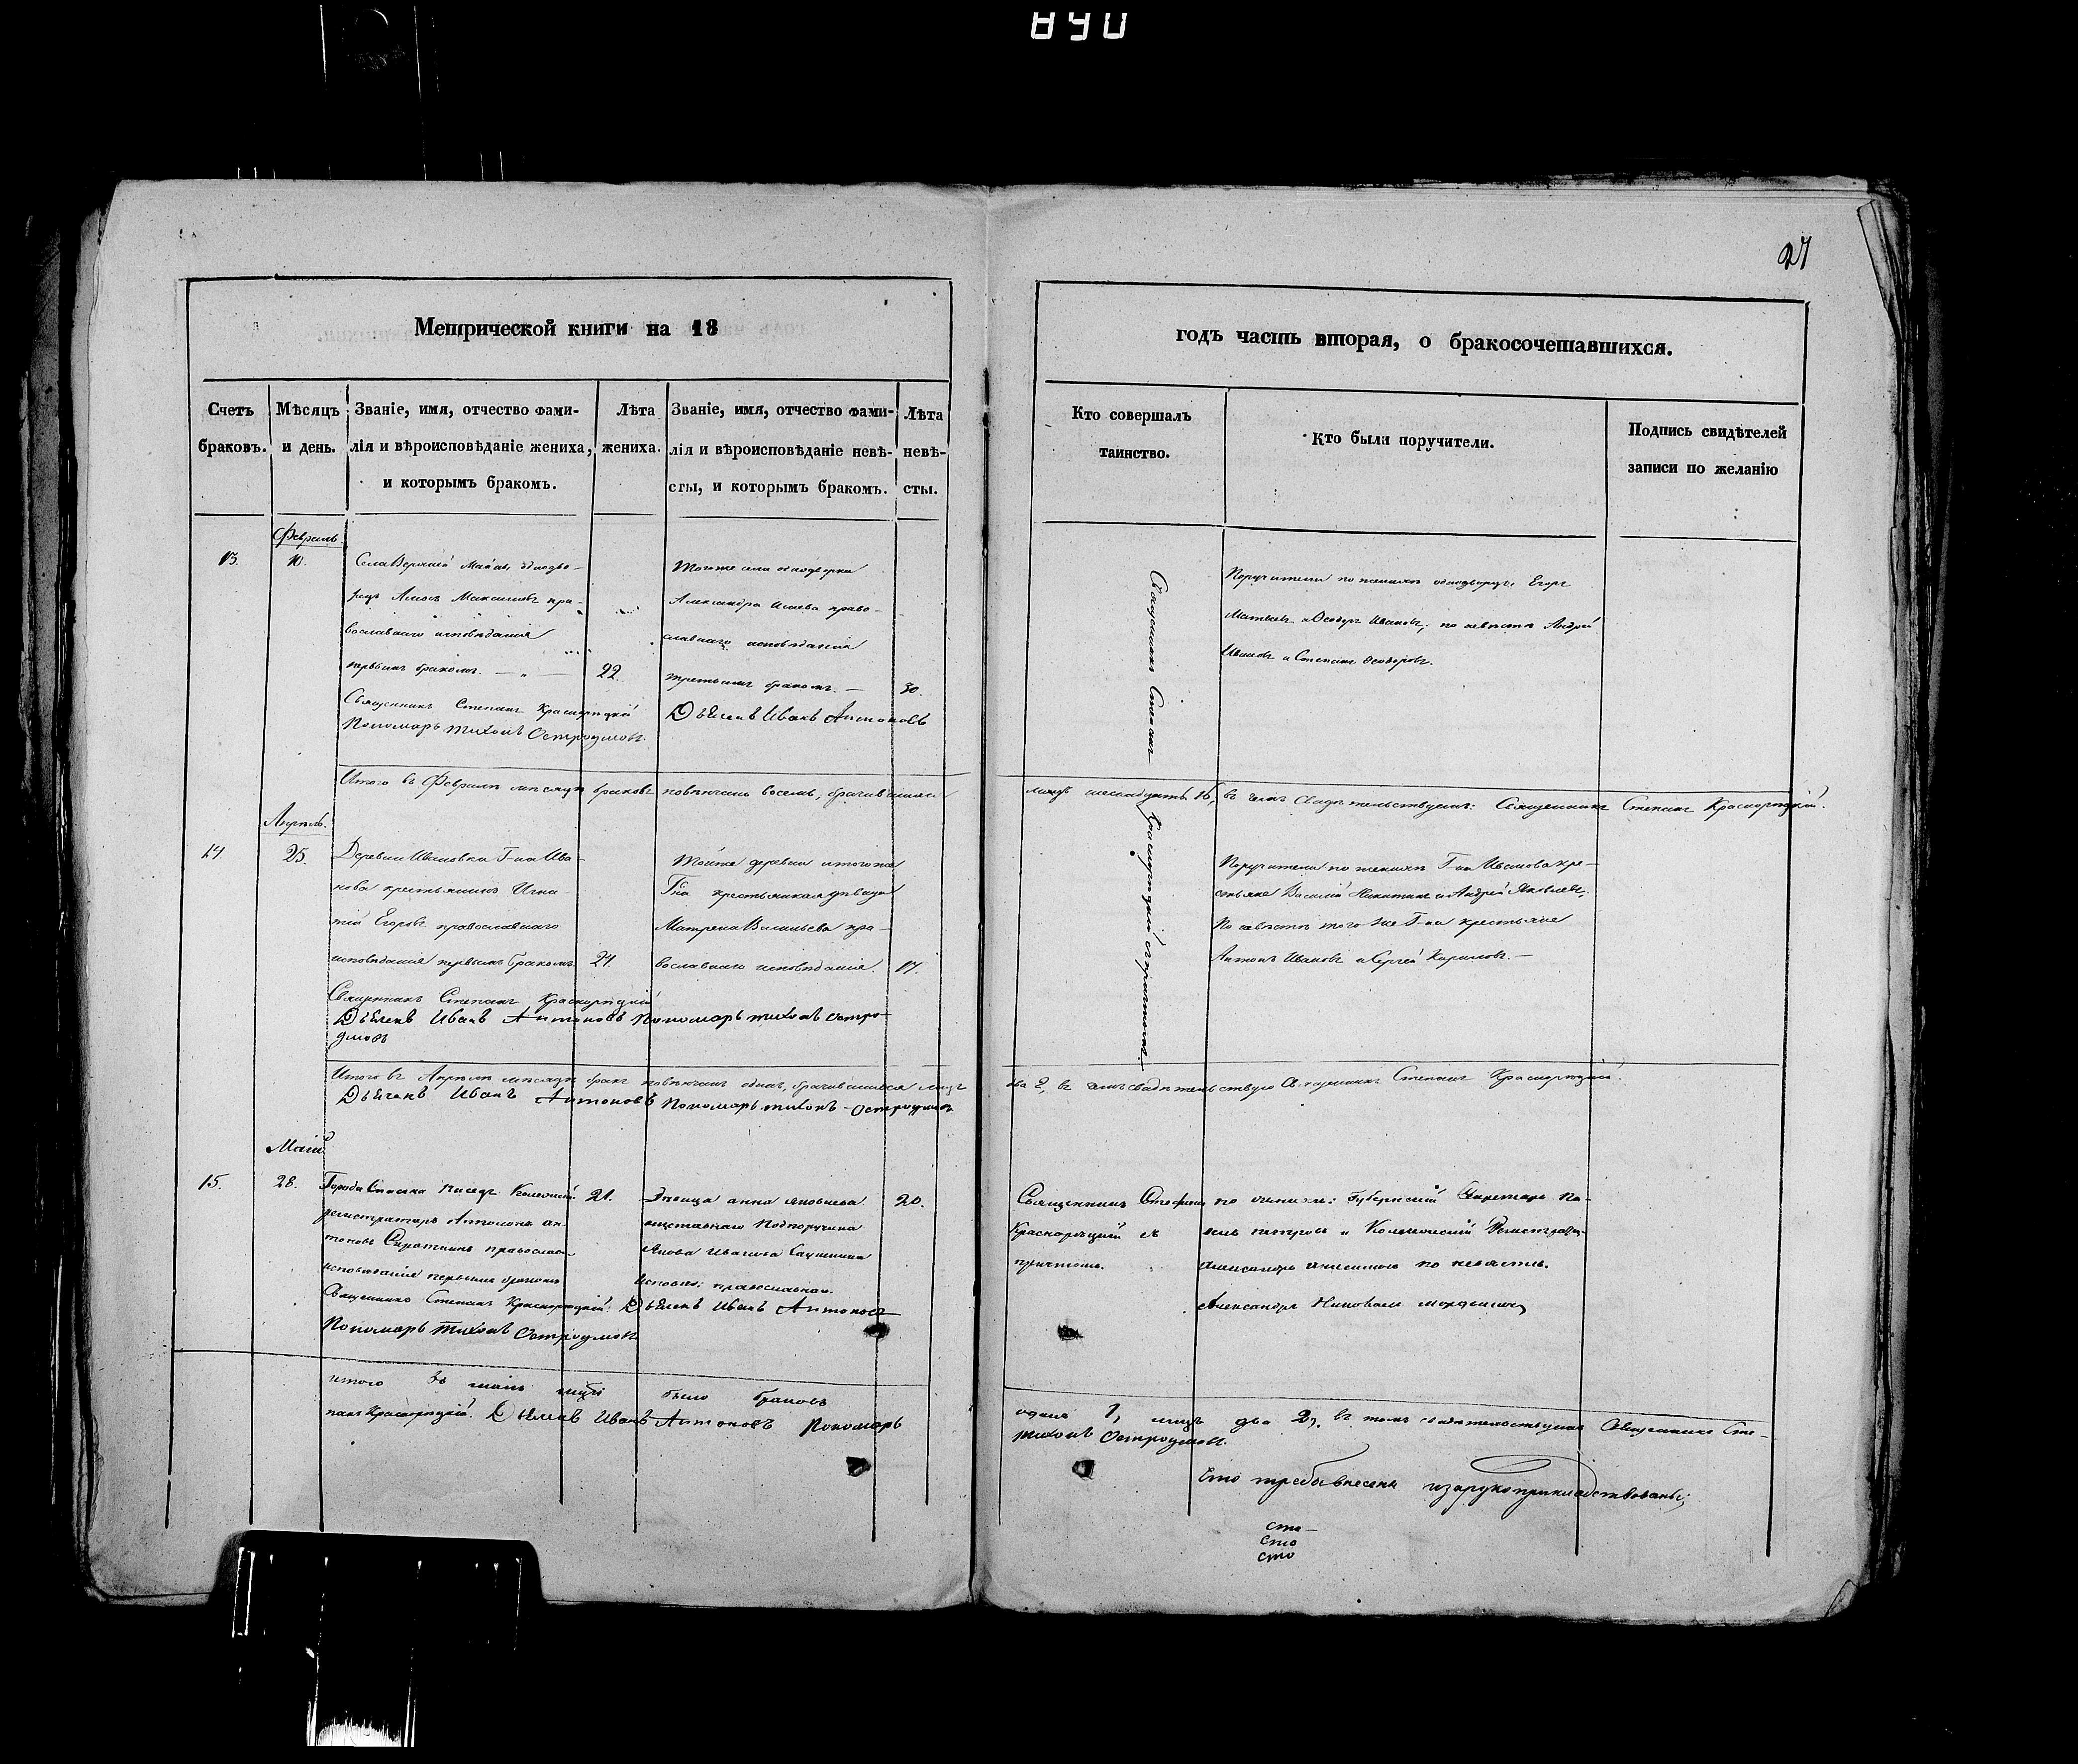 890
27
Метрической книги на 18
годъ часть вторая, о бракосочетавшихся.
Счетъ браковъ.
Мѣсяцъ и день.
Званіе, имя, отчество фами-
лія и вѣроисповѣданіе жениха,
и которымъ бракомъ.
Лѣта жениха.
Званіе, имя, отчество фами-
лія и вѣроисповѣданіе невѣ-
сты, и которымъ бракомъ.
Лѣта невѣ-
сты.
Кто совершалъ
таинство.
Кто были поручители.
Подпись свидѣтелей
записи по желанію
Февраль
13.
10.
Села Верхній Маіовъ, однодво-
рецъ Максимовъ пра-
вославнаго исповѣданія
первымъ бракомъ.
22.
Священникъ Степанъ Краснорѣцкій
Пономарь Тихонъ Остроумовъ.
Тогоже села однодворка
Александра Исаева право-
славнаго исповѣданія
третьимъ бракомъ. —
30.
Дьячекъ Иванъ Антоновъ
Священникъ Степанъ Краснорѣцкій съ причтомъ.
Поручители по женихѣ однодворцы: Егоръ
Матвѣевъ и Ѳеодоръ Ивановъ; по невѣстѣ Андрей
Ивановъ и Степанъ Ѳеодоровъ.
Итого въ Февралѣ мѣсяцѣ браковъ повѣнчано восемь, брачившихся
лицъ шеснадцать 16, въ чемъ свидѣтельствуемъ: Священникъ Степанъ Краснорѣцкій.
Апрѣль.
14.
25.
Деревни Ивановки Г-на Ива-
нова крестьянинъ Игна-
тій Егоровъ православнаго
исповѣданія первымъ бракомъ
24.
Священникъ Степанъ Краснорѣцкій
Дьячекъ Иванъ Антоновъ Пономарь Тихонъ Остро-
умовъ
Тойже деревни и тогоже
Г-на крестьянская дѣвица
Матрена Васильева пра-
вославнаго исповѣданія.
17.
Поручители по женихѣ Г-на Иванова кре-
стьяне Василій Никитинъ и Андрей Яковлевъ;
По невѣстѣ того же Г-на крестьяне
Антонъ Ивановъ и Сергей Кириловъ. —
Итого въ Апрѣлѣ мѣсяцѣ бракъ повѣнчанъ одинъ, брачившихся лицъ
два 2, въ чемъ свидѣтельствую Священникъ Степанъ Краснорѣцкій.
Дьячекъ Иванъ Антоновъ Пономарь Тихонъ Остроумовъ
Маій
15.
28.
Города Спаска Колежскій
регистраторъ ан-
тоновъ православна
исповѣданія первымъ бракомъ
21.
Священникъ Степанъ Краснорѣцкій.
Пономарь Тихонъ Остроумовъ
Дѣвица анна яковлева
отставнаго Подпоручика
Якова Иванова
исповѣ: православнаго.
20.
Дьячекъ Иванъ Антоновъ
Священникъ Стефанъ
Краснорѣцкій съ
причтомъ.
по женихѣ: Губернскій Секретарь Па-
велъ петровъ и Колежскій Регистраторъ
александръ по невѣстѣ.
Александръ
итого въ маіѣ мцѣ было браковъ
одинъ 1, лицъ два 2, въ томъ свидѣтельствуемъ Священникъ Сте-
панъ Краснорѣцкій. Дьячекъ Иванъ Антоновъ Пономарь
Тихонъ Остроумовъ.
Сіи требы внесены и зарукоприкладствованы;
сто
сто
сто